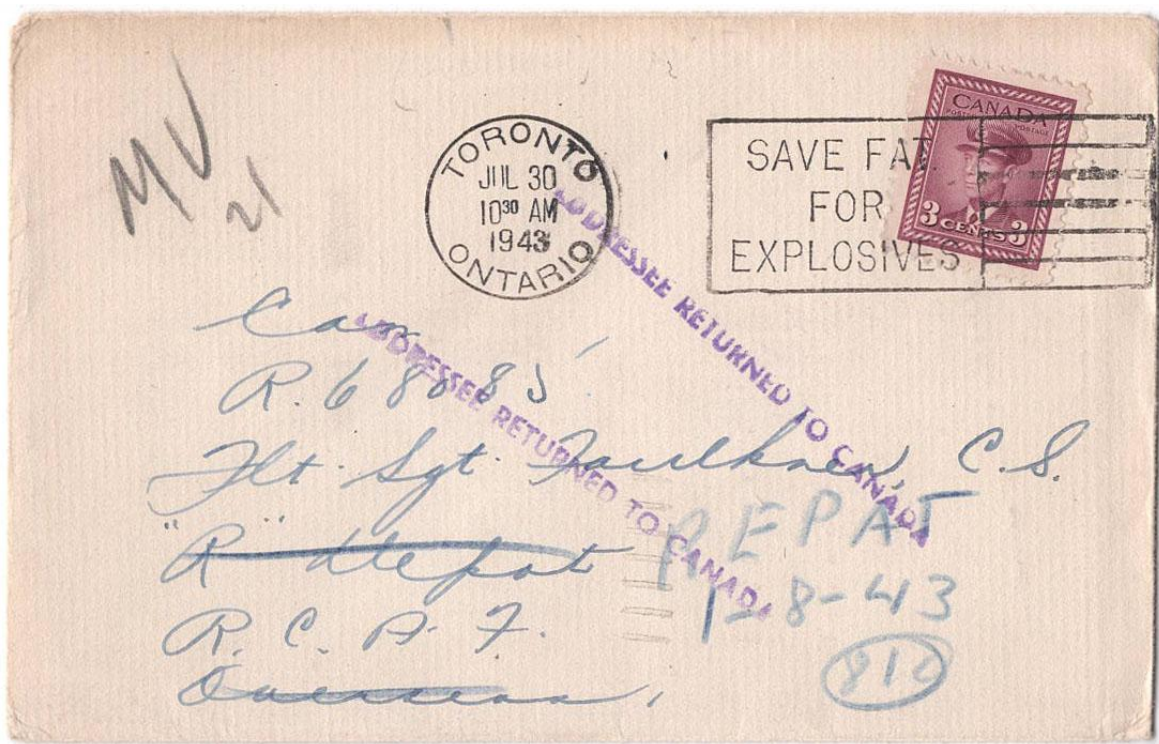 MV
21
TORONTO
JUL 30
10³⁰ AM
1943
ONTARIO
SAVE FAT
FOR
EXPLOSIVES
CANADA
POSTES POSTAGE
3 CENTS 3
ADDRESSEE RETURNED TO CANADA
ADDRESSEE RETURNED TO CANADA
Can
R. 68085
Flt. Sgt. Faulkner, C.S.
"R" depot
R. C. A. F.
Overseas,
REPAT
1-8-43